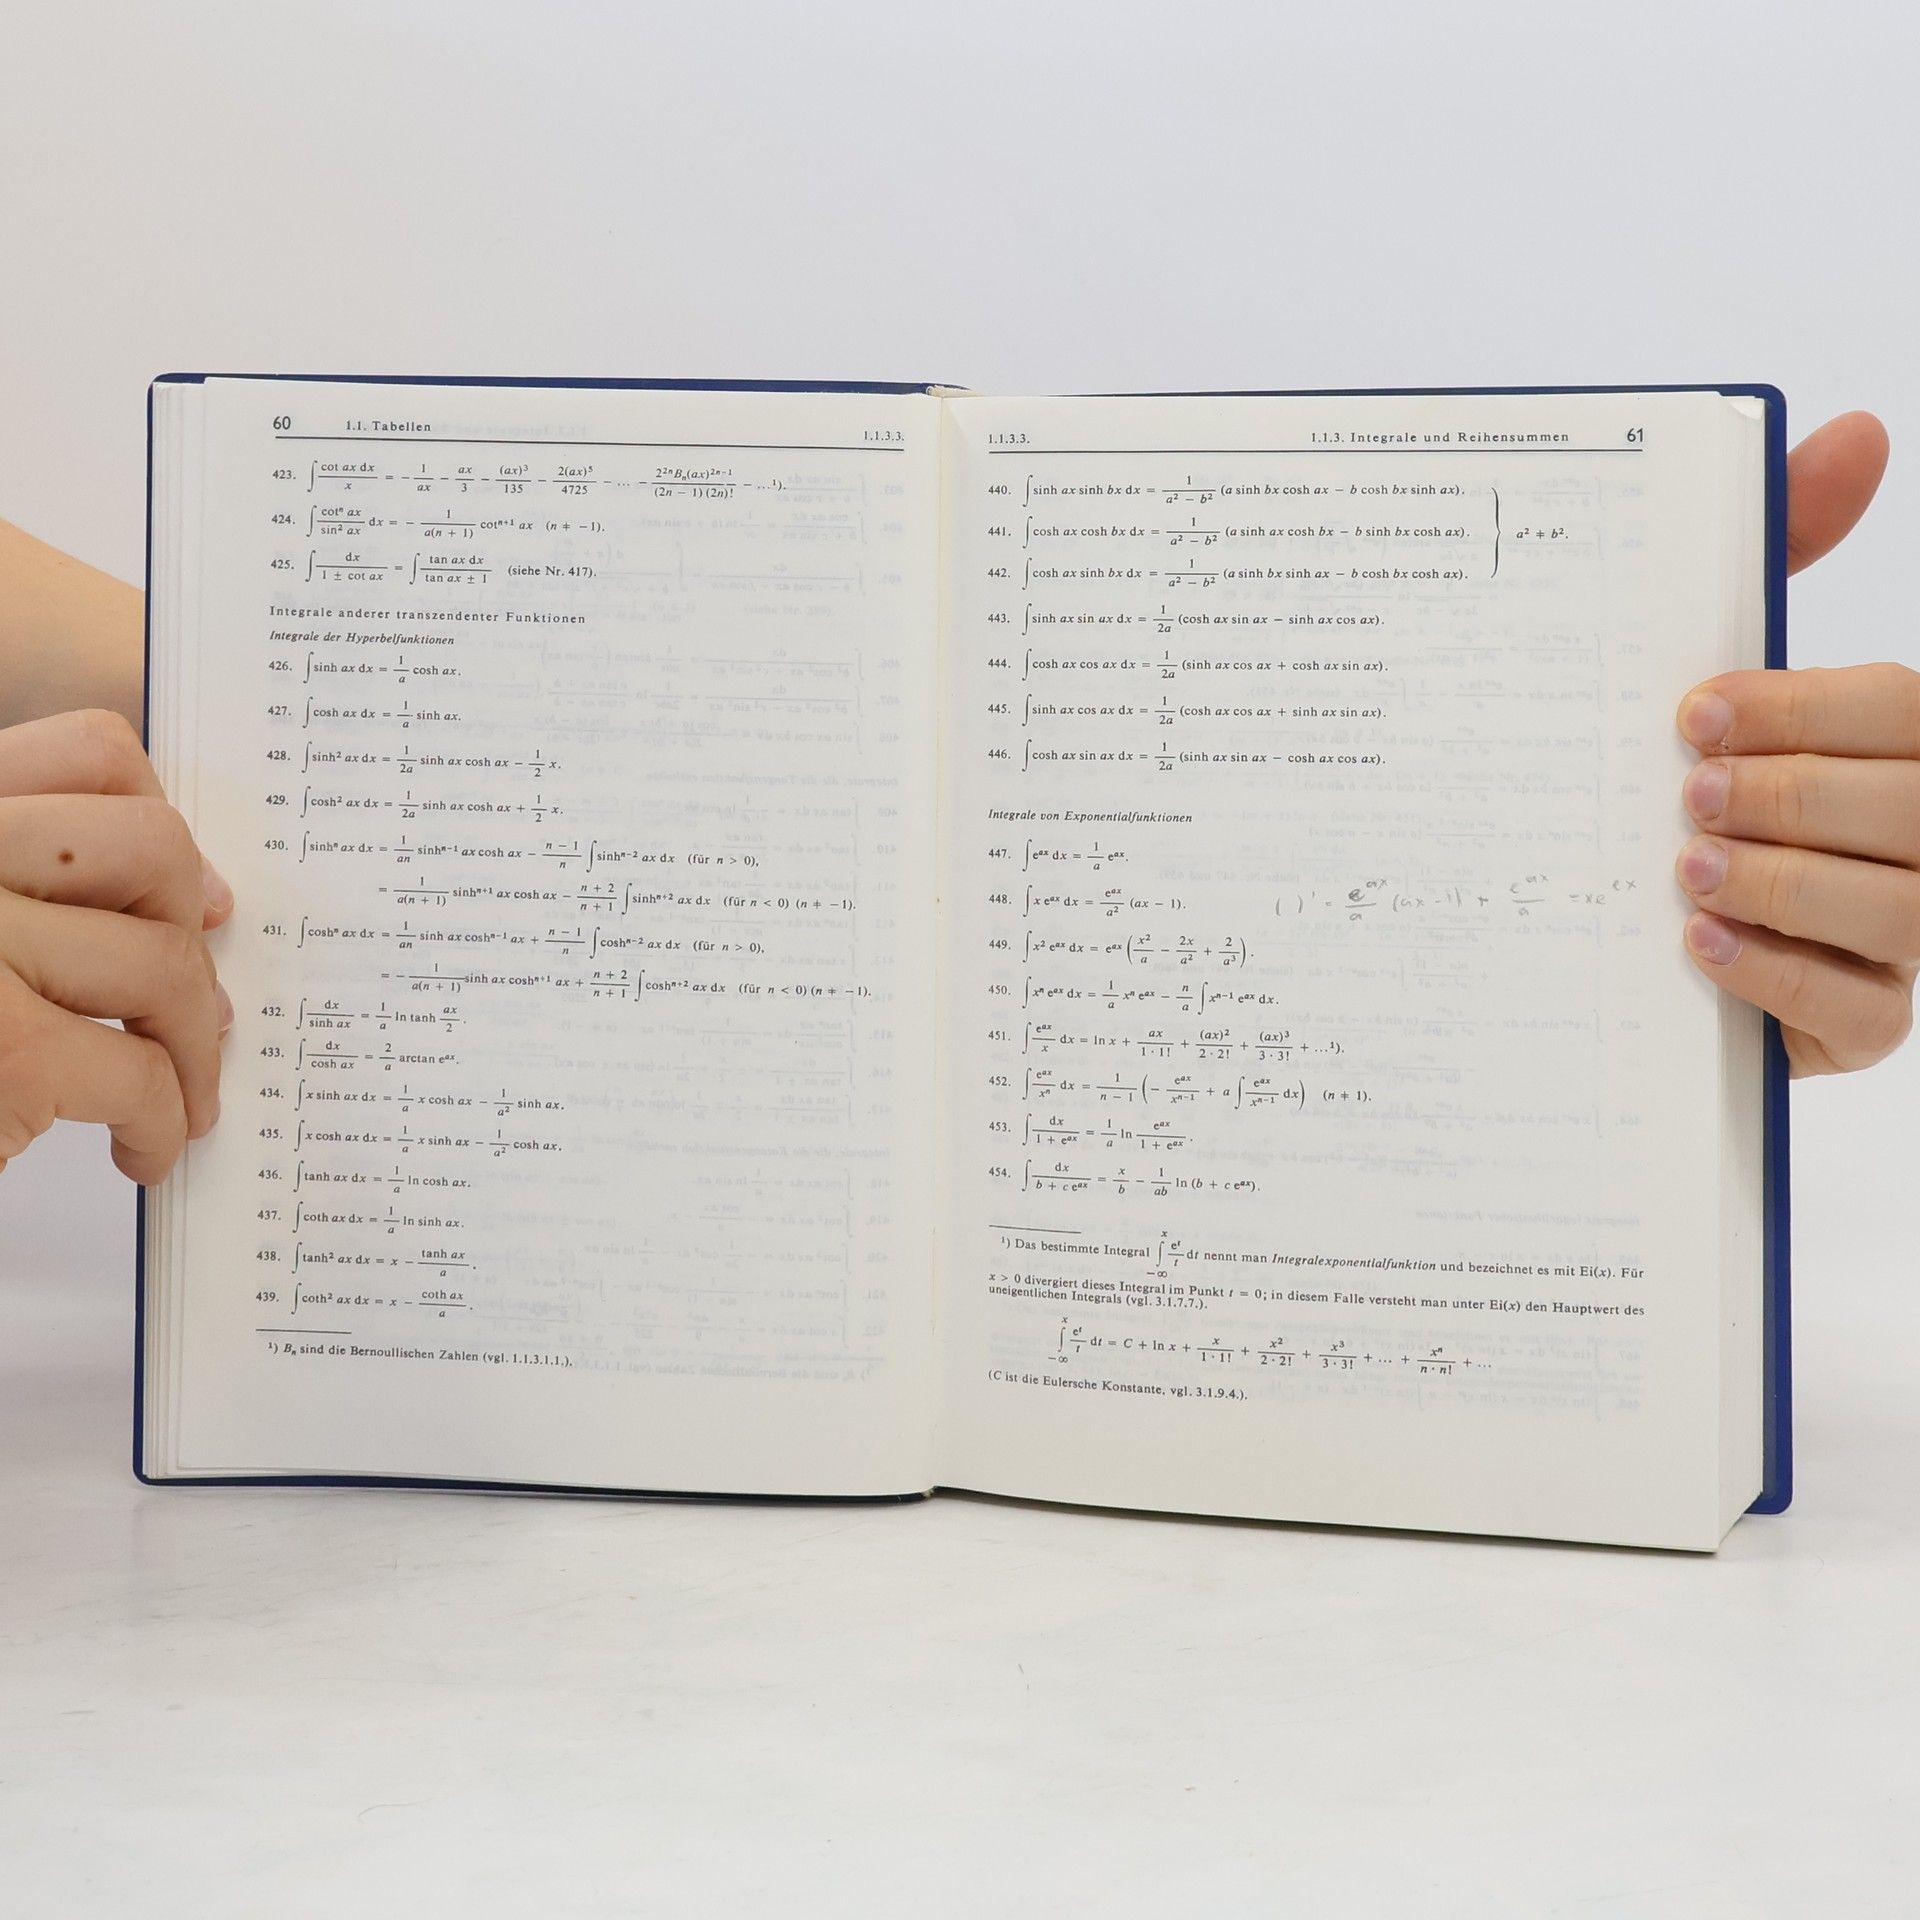 60 1.1. Tabellen 1.1.3.3.
423. ∫ cot ax dx / x = − 1/(ax) − ax/3 − (ax)³/135 − 2(ax)⁵/4725 − … − 2²ⁿBₙ(ax)²ⁿ⁻¹ / ((2n − 1) (2n)!) − …¹).
424. ∫ cotⁿ ax / sin² ax dx = − 1/(a(n + 1)) cotⁿ⁺¹ ax (n ≠ −1).
425. ∫ dx / (1 ± cot ax) = ∫ tan ax dx / (tan ax ± 1) (siehe Nr. 417).
Integrale anderer transzendenter Funktionen
Integrale der Hyperbelfunktionen
426. ∫ sinh ax dx = 1/a cosh ax.
427. ∫ cosh ax dx = 1/a sinh ax.
428. ∫ sinh² ax dx = 1/(2a) sinh ax cosh ax − 1/2 x.
429. ∫ cosh² ax dx = 1/(2a) sinh ax cosh ax + 1/2 x.
430. ∫ sinhⁿ ax dx = 1/(an) sinhⁿ⁻¹ ax cosh ax − (n − 1)/n ∫ sinhⁿ⁻² ax dx (für n > 0),
= 1/(a(n + 1)) sinhⁿ⁺¹ ax cosh ax − (n + 2)/(n + 1) ∫ sinhⁿ⁺² ax dx (für n < 0) (n ≠ −1).
431. ∫ coshⁿ ax dx = 1/(an) sinh ax coshⁿ⁻¹ ax + (n − 1)/n ∫ coshⁿ⁻² ax dx (für n > 0),
= − 1/(a(n + 1)) sinh ax coshⁿ⁺¹ ax + (n + 2)/(n + 1) ∫ coshⁿ⁺² ax dx (für n < 0) (n ≠ −1).
432. ∫ dx / sinh ax = 1/a ln tanh ax/2.
433. ∫ dx / cosh ax = 2/a arctan eᵃˣ.
434. ∫ x sinh ax dx = 1/a x cosh ax − 1/a² sinh ax.
435. ∫ x cosh ax dx = 1/a x sinh ax − 1/a² cosh ax.
436. ∫ tanh ax dx = 1/a ln cosh ax.
437. ∫ coth ax dx = 1/a ln sinh ax.
438. ∫ tanh² ax dx = x − tanh ax / a.
439. ∫ coth² ax dx = x − coth ax / a.
¹) Bₙ sind die Bernoullischen Zahlen (vgl. 1.1.3.1.1.).
1.1.3.3. 1.1.3. Integrale und Reihensummen 61
440. ∫ sinh ax sinh bx dx = 1/(a² − b²) (a sinh bx cosh ax − b cosh bx sinh ax).
441. ∫ cosh ax cosh bx dx = 1/(a² − b²) (a sinh ax cosh bx − b sinh bx cosh ax). } a² ≠ b².
442. ∫ cosh ax sinh bx dx = 1/(a² − b²) (a sinh bx sinh ax − b cosh bx cosh ax).
443. ∫ sinh ax sin ax dx = 1/(2a) (cosh ax sin ax − sinh ax cos ax).
444. ∫ cosh ax cos ax dx = 1/(2a) (sinh ax cos ax + cosh ax sin ax).
445. ∫ sinh ax cos ax dx = 1/(2a) (cosh ax cos ax + sinh ax sin ax).
446. ∫ cosh ax sin ax dx = 1/(2a) (sinh ax sin ax − cosh ax cos ax).
Integrale von Exponentialfunktionen
447. ∫ eᵃˣ dx = 1/a eᵃˣ.
448. ∫ x eᵃˣ dx = eᵃˣ/a² (ax − 1). ( )' = eᵃˣ/a (ax − 1) + eᵃˣ/a = x eᵃˣ
449. ∫ x² eᵃˣ dx = eᵃˣ (x²/a − 2x/a² + 2/a³).
450. ∫ xⁿ eᵃˣ dx = 1/a xⁿ eᵃˣ − n/a ∫ xⁿ⁻¹ eᵃˣ dx.
451. ∫ eᵃˣ/x dx = ln x + ax/(1 · 1!) + (ax)²/(2 · 2!) + (ax)³/(3 · 3!) + …¹).
452. ∫ eᵃˣ/xⁿ dx = 1/(n − 1) (− eᵃˣ/xⁿ⁻¹ + a ∫ eᵃˣ/xⁿ⁻¹ dx) (n ≠ 1).
453. ∫ dx / (1 + eᵃˣ) = 1/a ln eᵃˣ/(1 + eᵃˣ).
454. ∫ dx / (b + c eᵃˣ) = x/b − 1/(ab) ln (b + c eᵃˣ).
¹) Das bestimmte Integral ∫₋∞ˣ eᵗ/t dt nennt man Integralexponentialfunktion und bezeichnet es mit Ei(x). Für
x > 0 divergiert dieses Integral im Punkt t = 0; in diesem Falle versteht man unter Ei(x) den Hauptwert des
uneigentlichen Integrals (vgl. 3.1.7.7.).
∫₋∞ˣ eᵗ/t dt = C + ln x + x/(1 · 1!) + x²/(2 · 2!) + x³/(3 · 3!) + … + xⁿ/(n · n!) + …
(C ist die Eulersche Konstante, vgl. 3.1.9.4.).